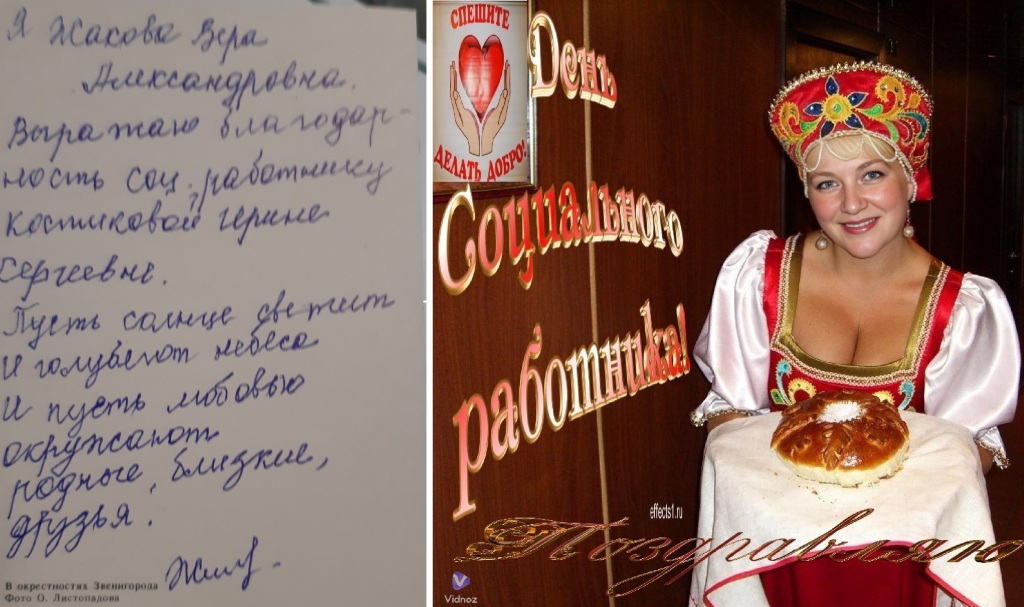 Я Жакова Вера
Александровна.
Выражаю благодар-
ность соц. работнику
Костиковой Ирине
Сергеевне.
Пусть солнце светит
И голубеют небеса
И пусть любовью
окружают
родные, близкие,
друзья.
В окрестностях Звенигорода
Фото О. Листопадова
СПЕШИТЕ
ДЕЛАТЬ ДОБРО!
День
Социального
работника!
effects1.ru
Поздравляю
Vidnoz